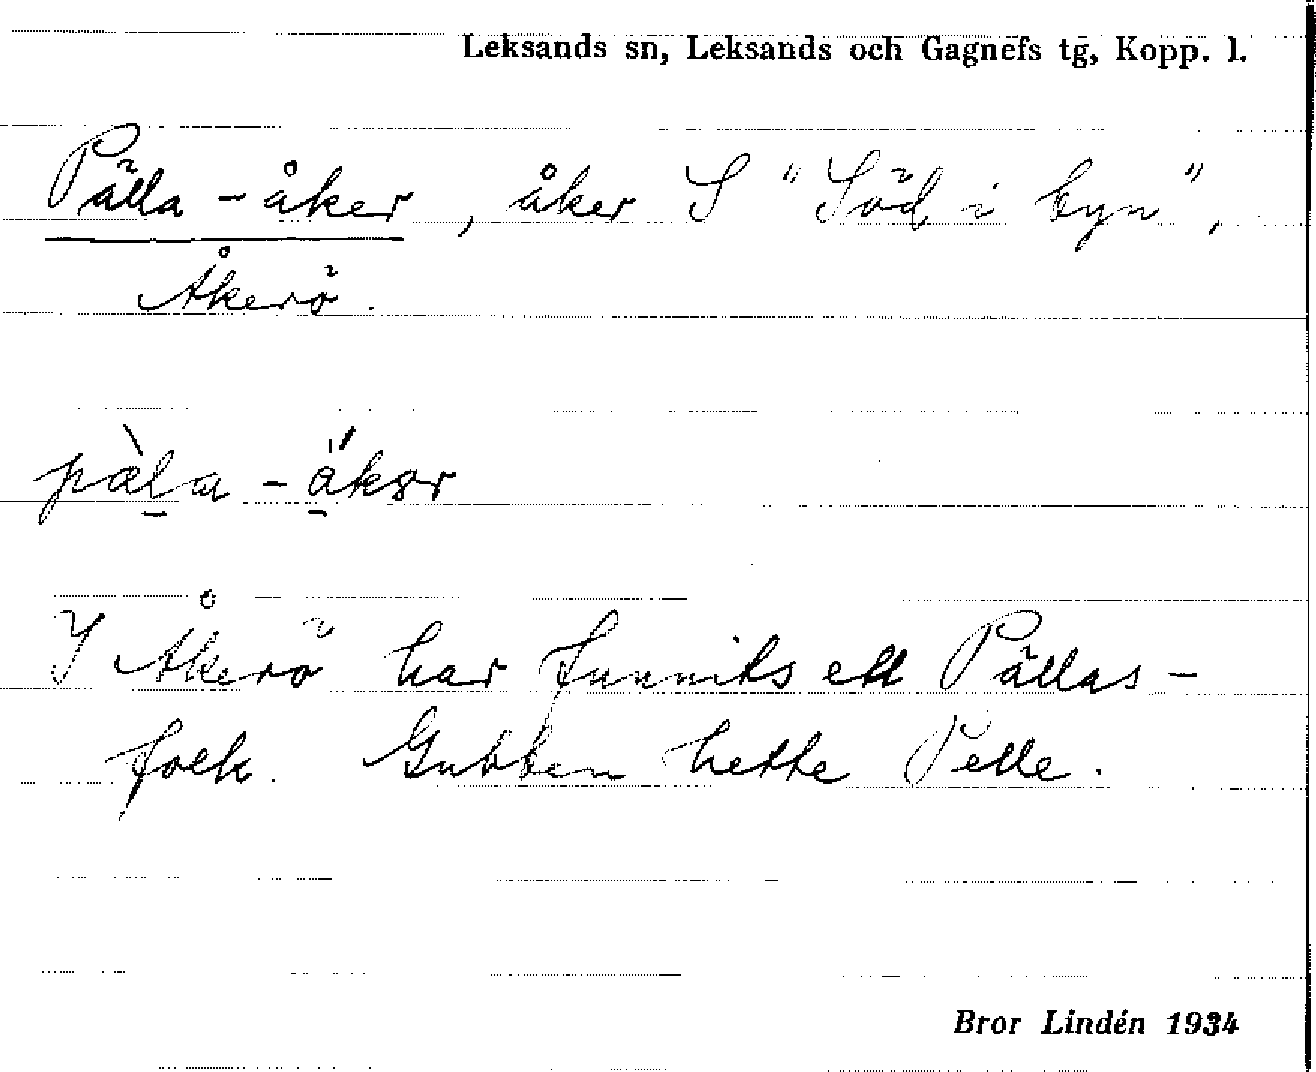 Leksands sn, Leksands och Gagnefs tg, Kopp. l.
Pälla-åker, åker S "Söd i byn",
Åkerö.
pæ̀la-åkər
I Åkerö har funnits ett Pällas-
folk. Gubben hette Pelle.
Bror Lindén 1934